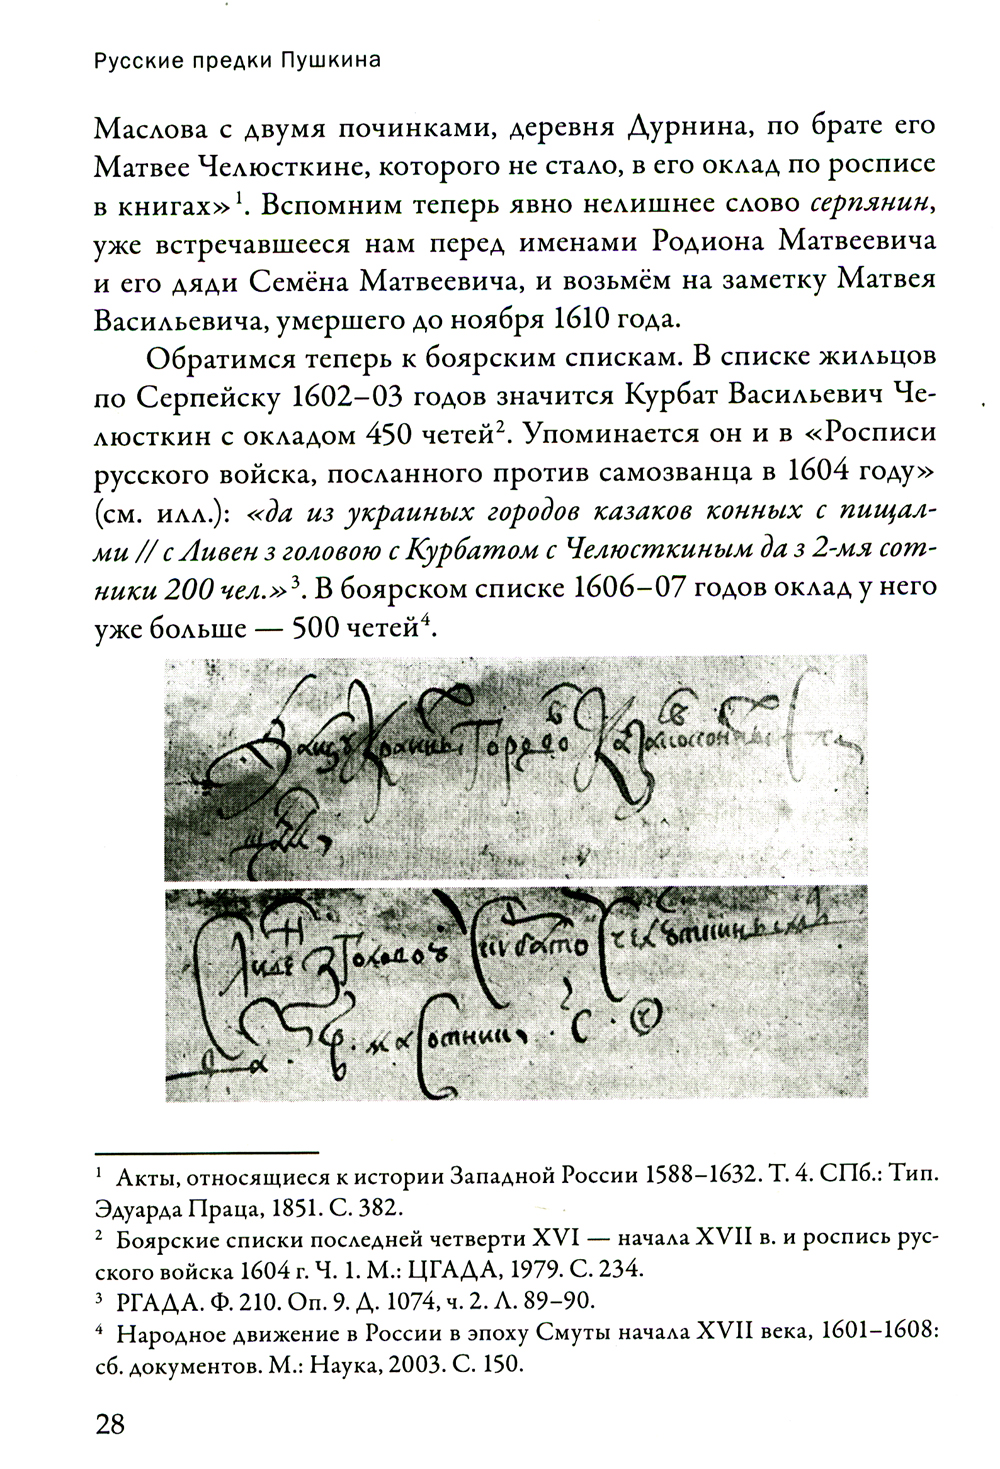 Русские предки Пушкина
Маслова с двумя починками, деревня Дурнина, по брате его
Матвее Челюсткине, которого не стало, в его оклад по росписе
в книгах»¹. Вспомним теперь явно нелишнее слово серпянин,
уже встречавшееся нам перед именами Родиона Матвеевича
и его дяди Семёна Матвеевича, и возьмём на заметку Матвея
Васильевича, умершего до ноября 1610 года.
Обратимся теперь к боярским спискам. В списке жильцов
по Серпейску 1602–03 годов значится Курбат Васильевич Че-
люсткин с окладом 450 четей². Упоминается он и в «Росписи
русского войска, посланного против самозванца в 1604 году»
(см. илл.): «да из украиных городов казаков конных с пищал-
ми // с Ливен з головою с Курбатом с Челюсткиным да з 2-мя сот-
ники 200 чел.»³. В боярском списке 1606–07 годов оклад у него
уже больше — 500 четей⁴.
¹ Акты, относящиеся к истории Западной России 1588–1632. Т. 4. СПб.: Тип.
Эдуарда Праца, 1851. С. 382.
² Боярские списки последней четверти XVI — начала XVII в. и роспись рус-
ского войска 1604 г. Ч. 1. М.: ЦГАДА, 1979. С. 234.
³ РГАДА. Ф. 210. Оп. 9. Д. 1074, ч. 2. Л. 89–90.
⁴ Народное движение в России в эпоху Смуты начала XVII века, 1601–1608:
сб. документов. М.: Наука, 2003. С. 150.
28